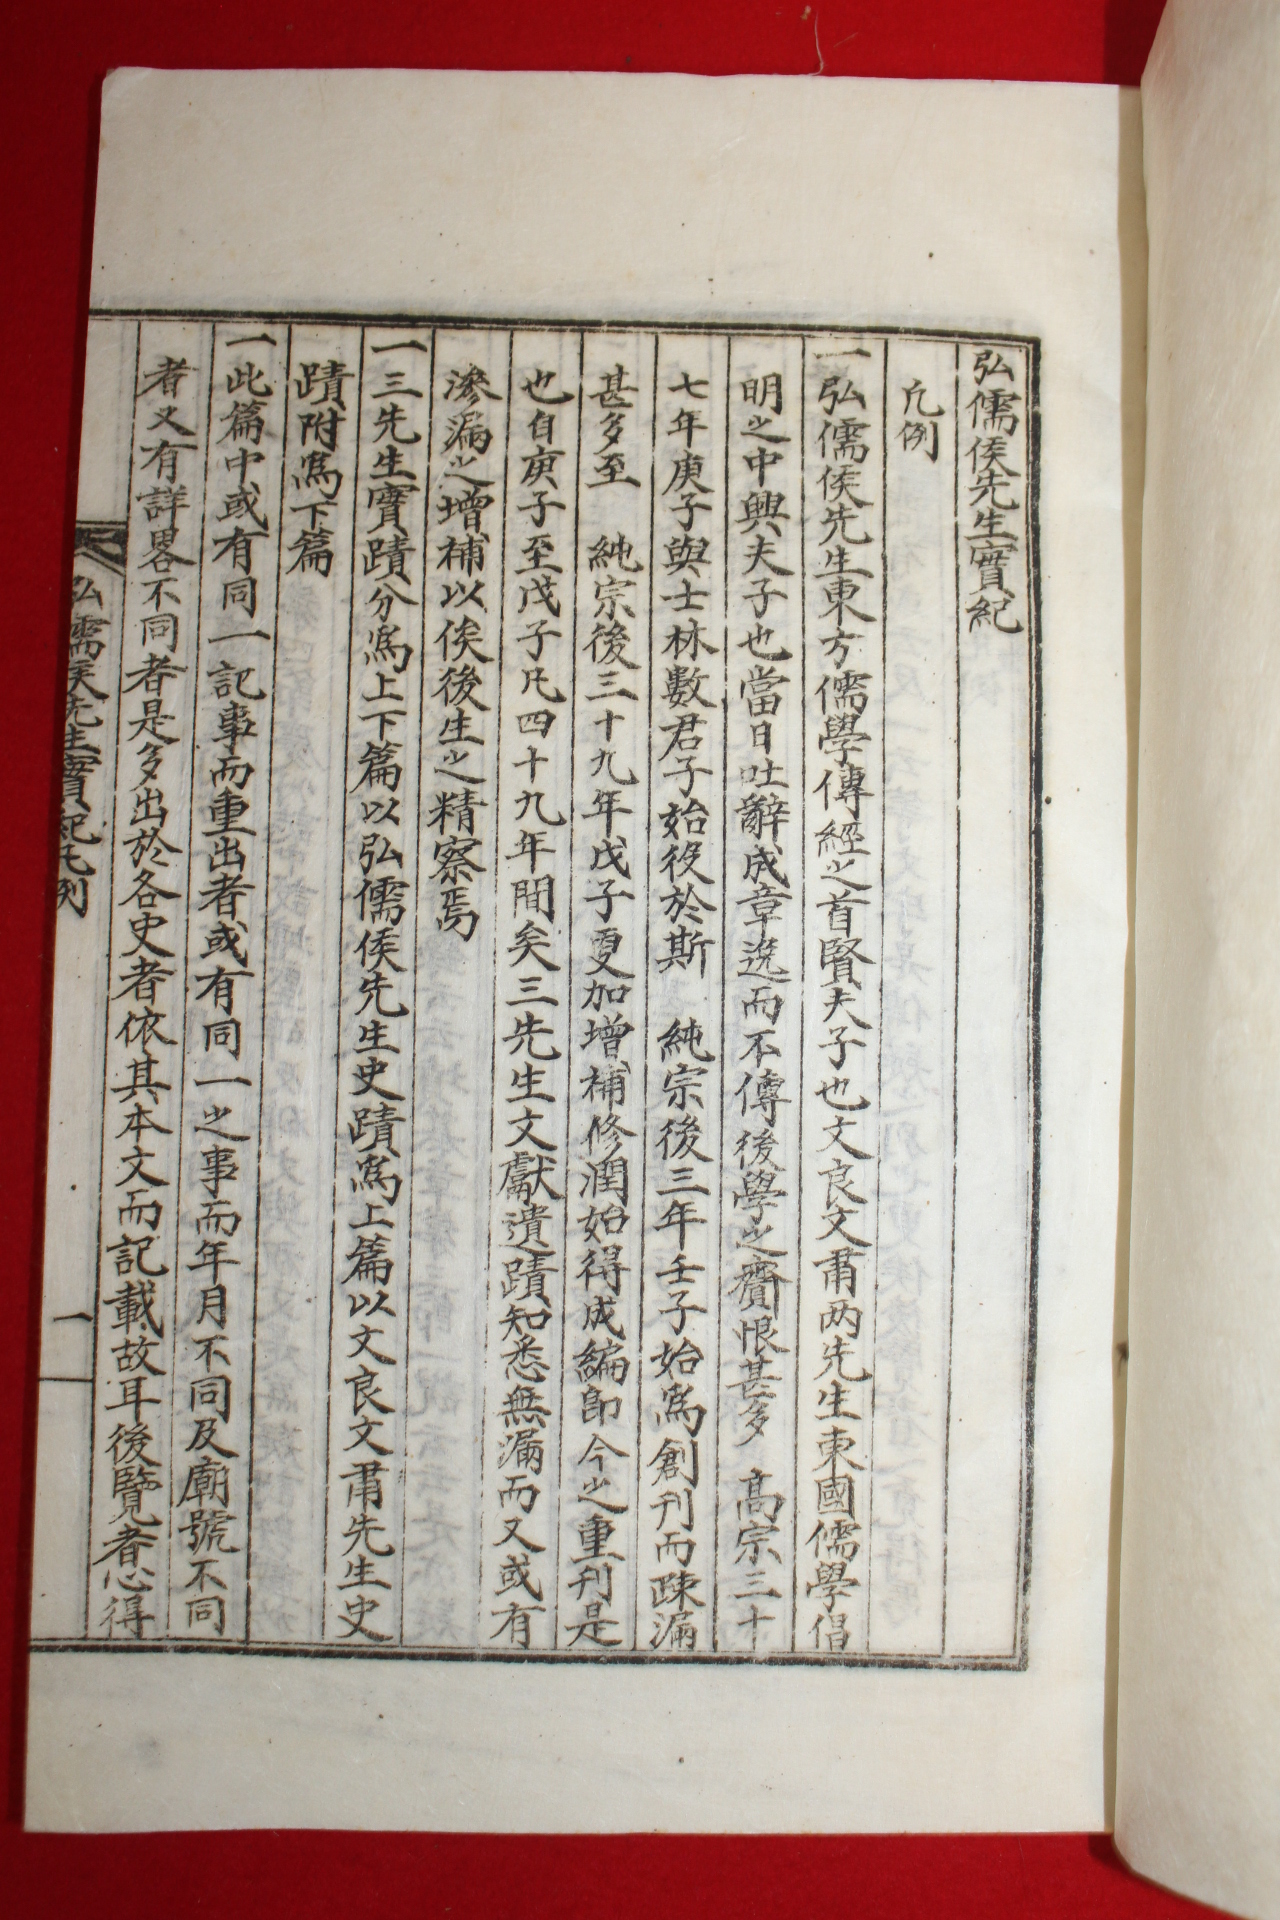 弘儒侯先生實紀
凡例
一弘儒侯先生東方儒學傳經之首賢夫子也文良文肅两先生東國儒學倡
明之中興夫子也當日吐辭成章逸而不傳後學之齎恨甚多 高宗三十
七年庚子與士林數君子始役於斯 純宗後三年壬子始爲創刊而疎漏
甚多至 純宗後三十九年戊子更加增補修潤始得成編卽今之重刊是
也自庚子至戊子凡四十九年間矣三先生文獻遺蹟知悉無漏而又或有
滲漏之增補以俟後生之精察焉
一三先生實蹟分爲上下篇以弘儒侯先生史蹟爲上篇以文良文肅先生史
蹟附爲下篇
一此篇中或有同一記事而重出者或有同一之事而年月不同及廟號不同
者又有詳畧不同者是多出於各史者依其本文而記載故耳後覽者心得
弘儒侯先生實紀凡例
一